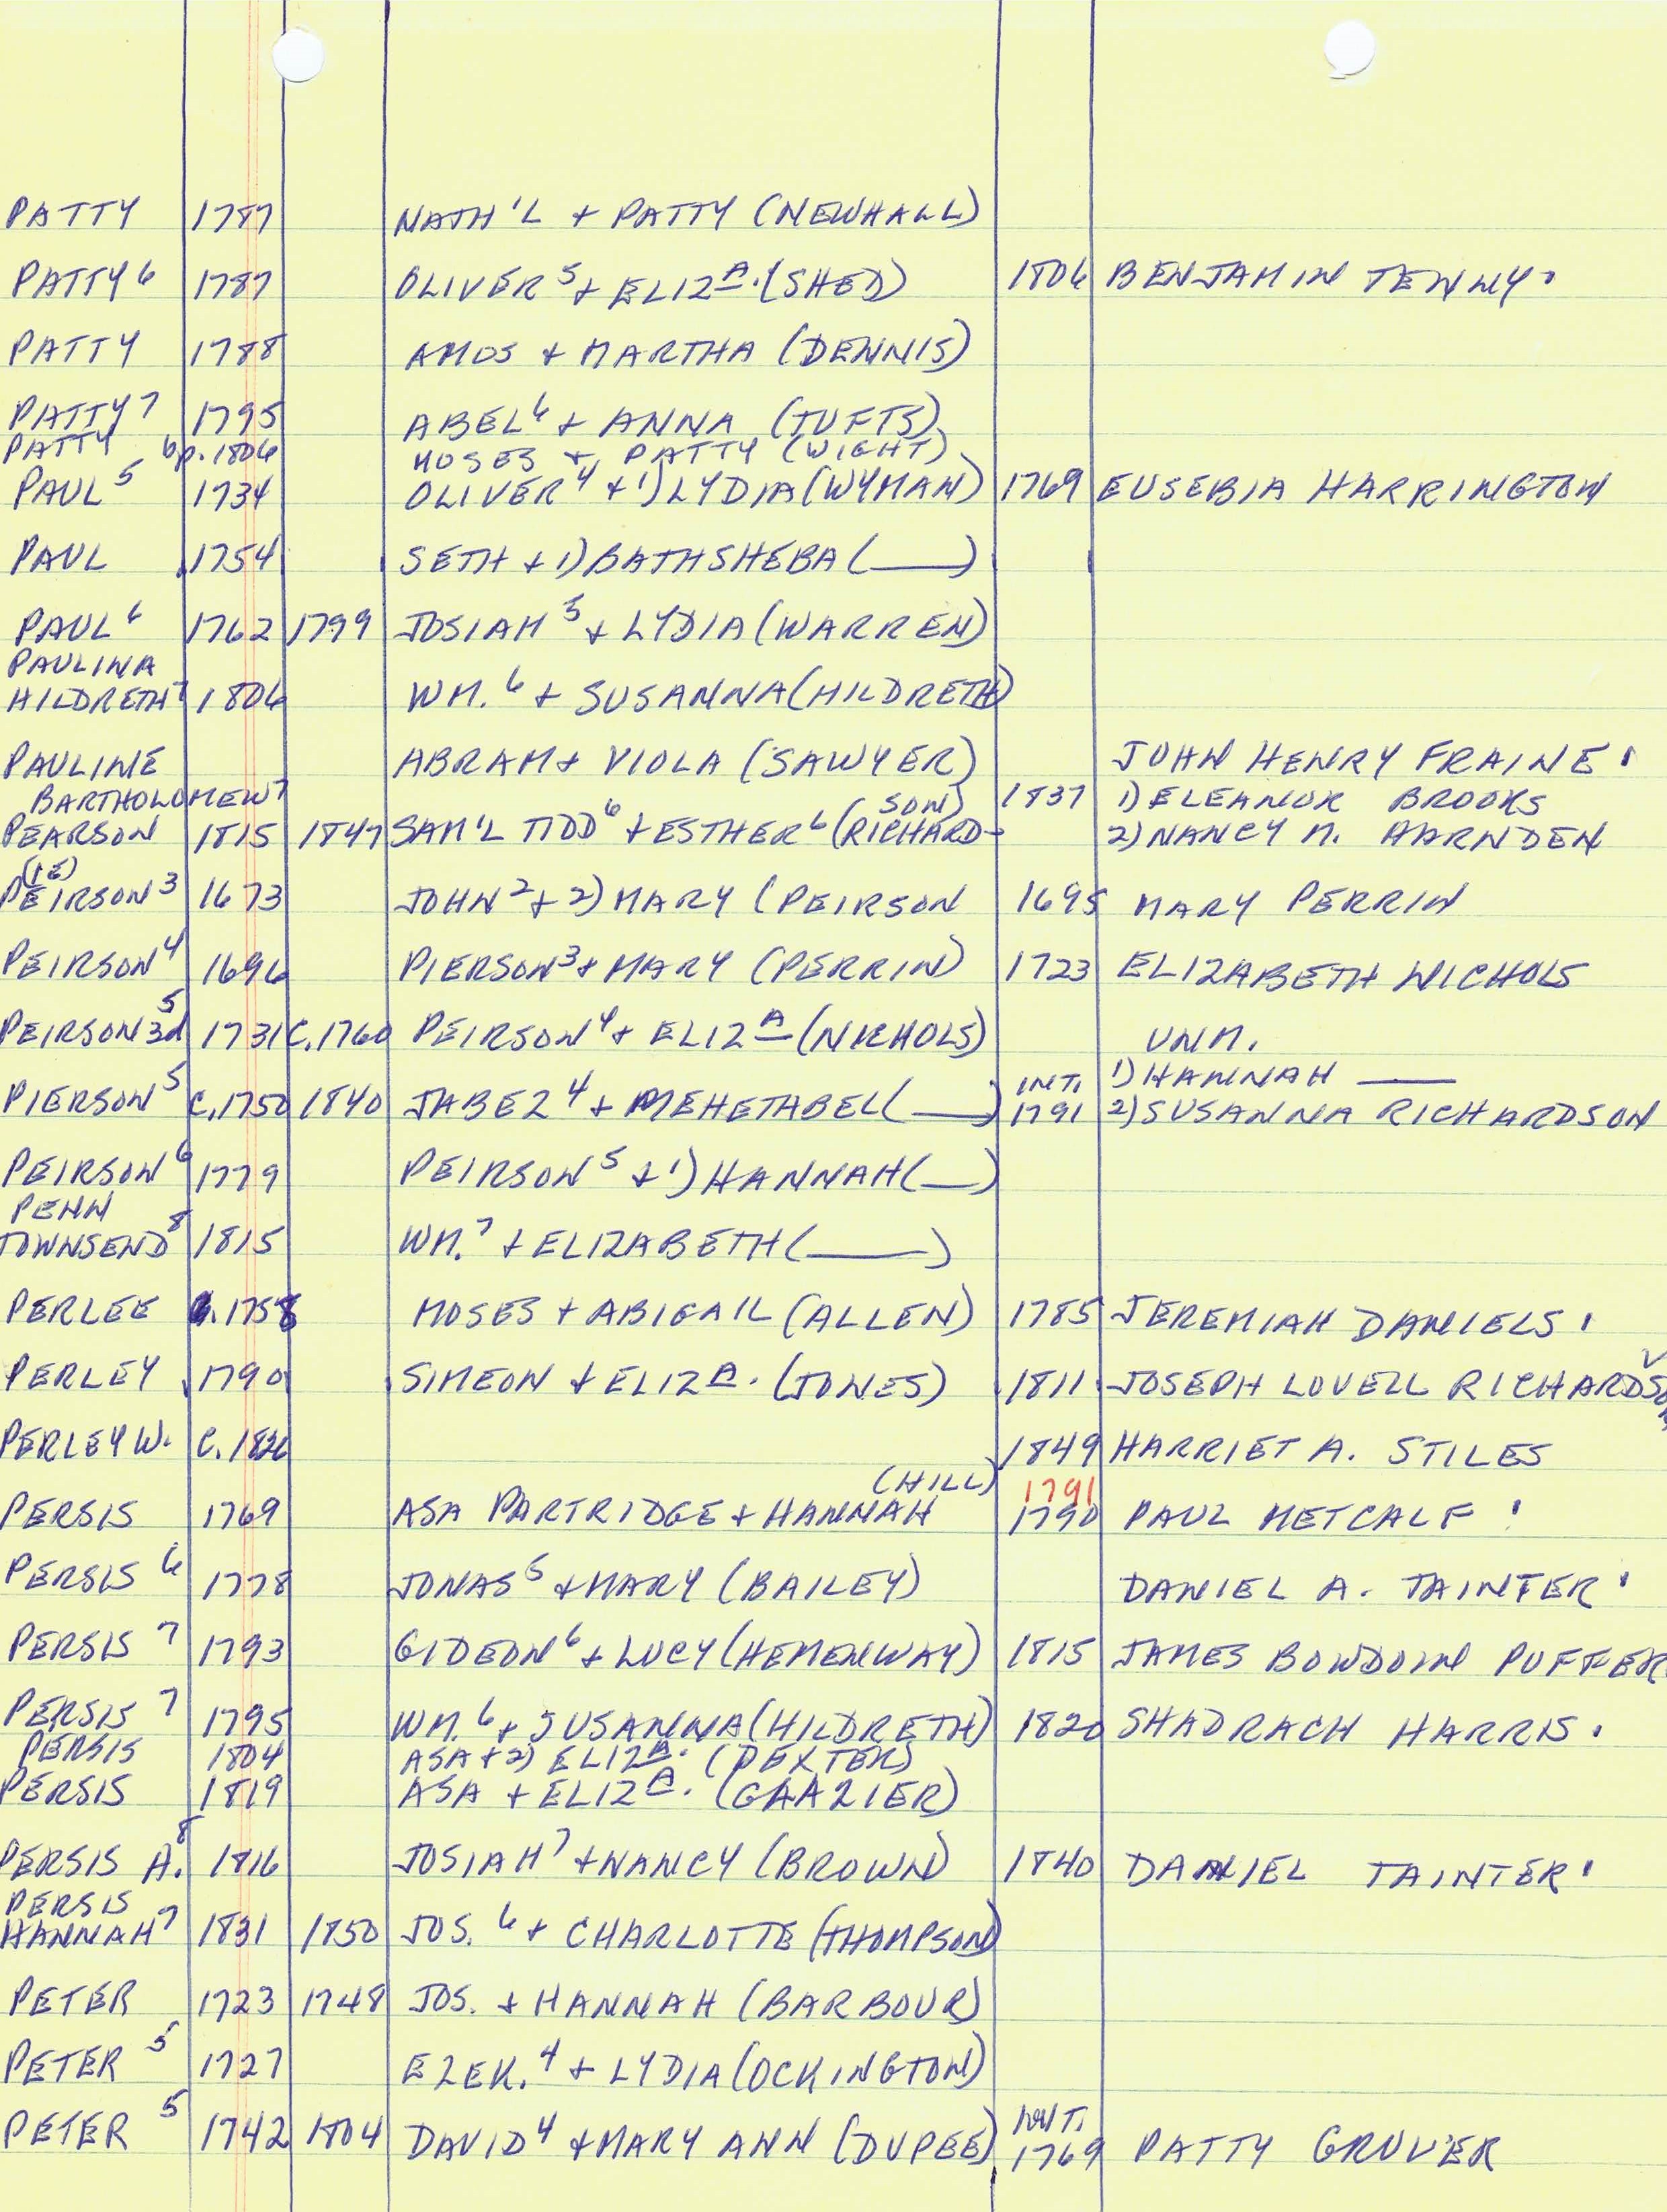 PATTY 1787 NATH'L + PATTY (NEWHALL)
PATTY 6 1787 OLIVER 5 + ELIZA. (SHED) 1806 BENJAMIN TENNY.
PATTY 1788 AMOS + MARTHA (DENNIS)
PATTY 7 1795 ABEL 6 + ANNA (TUFTS)
PATTY bp. 1806 MOSES + PATTY (WIGHT)
PAUL 5 1734 OLIVER 4 + 1) LYDIA (WYMAN) 1769 EUSEBIA HARRINGTON
PAUL 1754 SETH + 1) BATHSHEBA (___)
PAUL 6 1762 1799 JOSIAH 5 + LYDIA (WARREN)
PAULINA
HILDRETH 7 1806 WM. 6 + SUSANNA (HILDRETH)
PAULINE ABRAM + VIOLA (SAWYER) JOHN HENRY FRAINE.
BARTHOLOMEW 7 SON) 1837 1) ELEANOR BROOKS
PEARSON 1815 1847 SAM'L TIDD 6 + ESTHER 6 (RICHARD- 2) NANCY M. HARNDEN
(IE)
PEIRSON 3 1673 JOHN 2 + 2) MARY (PEIRSON 1695 MARY PERRIN
PEIRSON 4 1696 PIERSON 3 + MARY (PERRIN) 1723 ELIZABETH NICHOLS
PEIRSON 3d 5 1731 C. 1760 PEIRSON 4 + ELIZA (NICHOLS) UNM.
INT. 1) HANNAH ___
PIERSON 5 C. 1750 1840 JABEZ 4 + MEHETHABEL (___) 1791 2) SUSANNA RICHARDSON
PEIRSON 6 1779 PEIRSON 5 + 1) HANNAH (___)
PENN
TOWNSEND 8 1815 WM. 7 + ELIZABETH (___)
PERLEE C. 1758 MOSES + ABIGAIL (ALLEN) 1785 JEREMIAH DANIELS.
PERLEY 1790 SIMEON + ELIZA. (JONES) 1811 JOSEPH LOVELL RICHARDSON
PERLEY W. C. 1826 1849 HARRIET A. STILES
(HILL) 1791
PERSIS 1769 ASA PARTRIDGE + HANNAH 1790 PAUL METCALF.
PERSIS 6 1778 JONAS 5 + MARY (BAILEY) DANIEL A. TAINTER.
PERSIS 7 1793 GIDEON 6 + LUCY (HEMENWAY) 1815 JAMES BOWDOIN PUFFER
PERSIS 7 1795 WM. 6 + SUSANNA (HILDRETH) 1820 SHADRACH HARRIS.
PERSIS 1804 ASA + 2) ELIZA. (DEXTER)
PERSIS 1819 ASA + ELIZA.
PERSIS A. 8 1816 JOSIAH 7 + NANCY (BROWN) 1840 DANIEL TAINTER.
PERSIS
HANNAH 7 1831 1850 JOS. 6 + CHARLOTTE (THOMPSON)
PETER 1723 1748 JOS. + HANNAH (BARBOUR)
PETER 5 1727 EZEK. 4 + LYDIA (OCKINGTON)
INT.
PETER 5 1742 1804 DAVID 4 + MARY ANN (DUPEE) 1769 PATTY GROVER